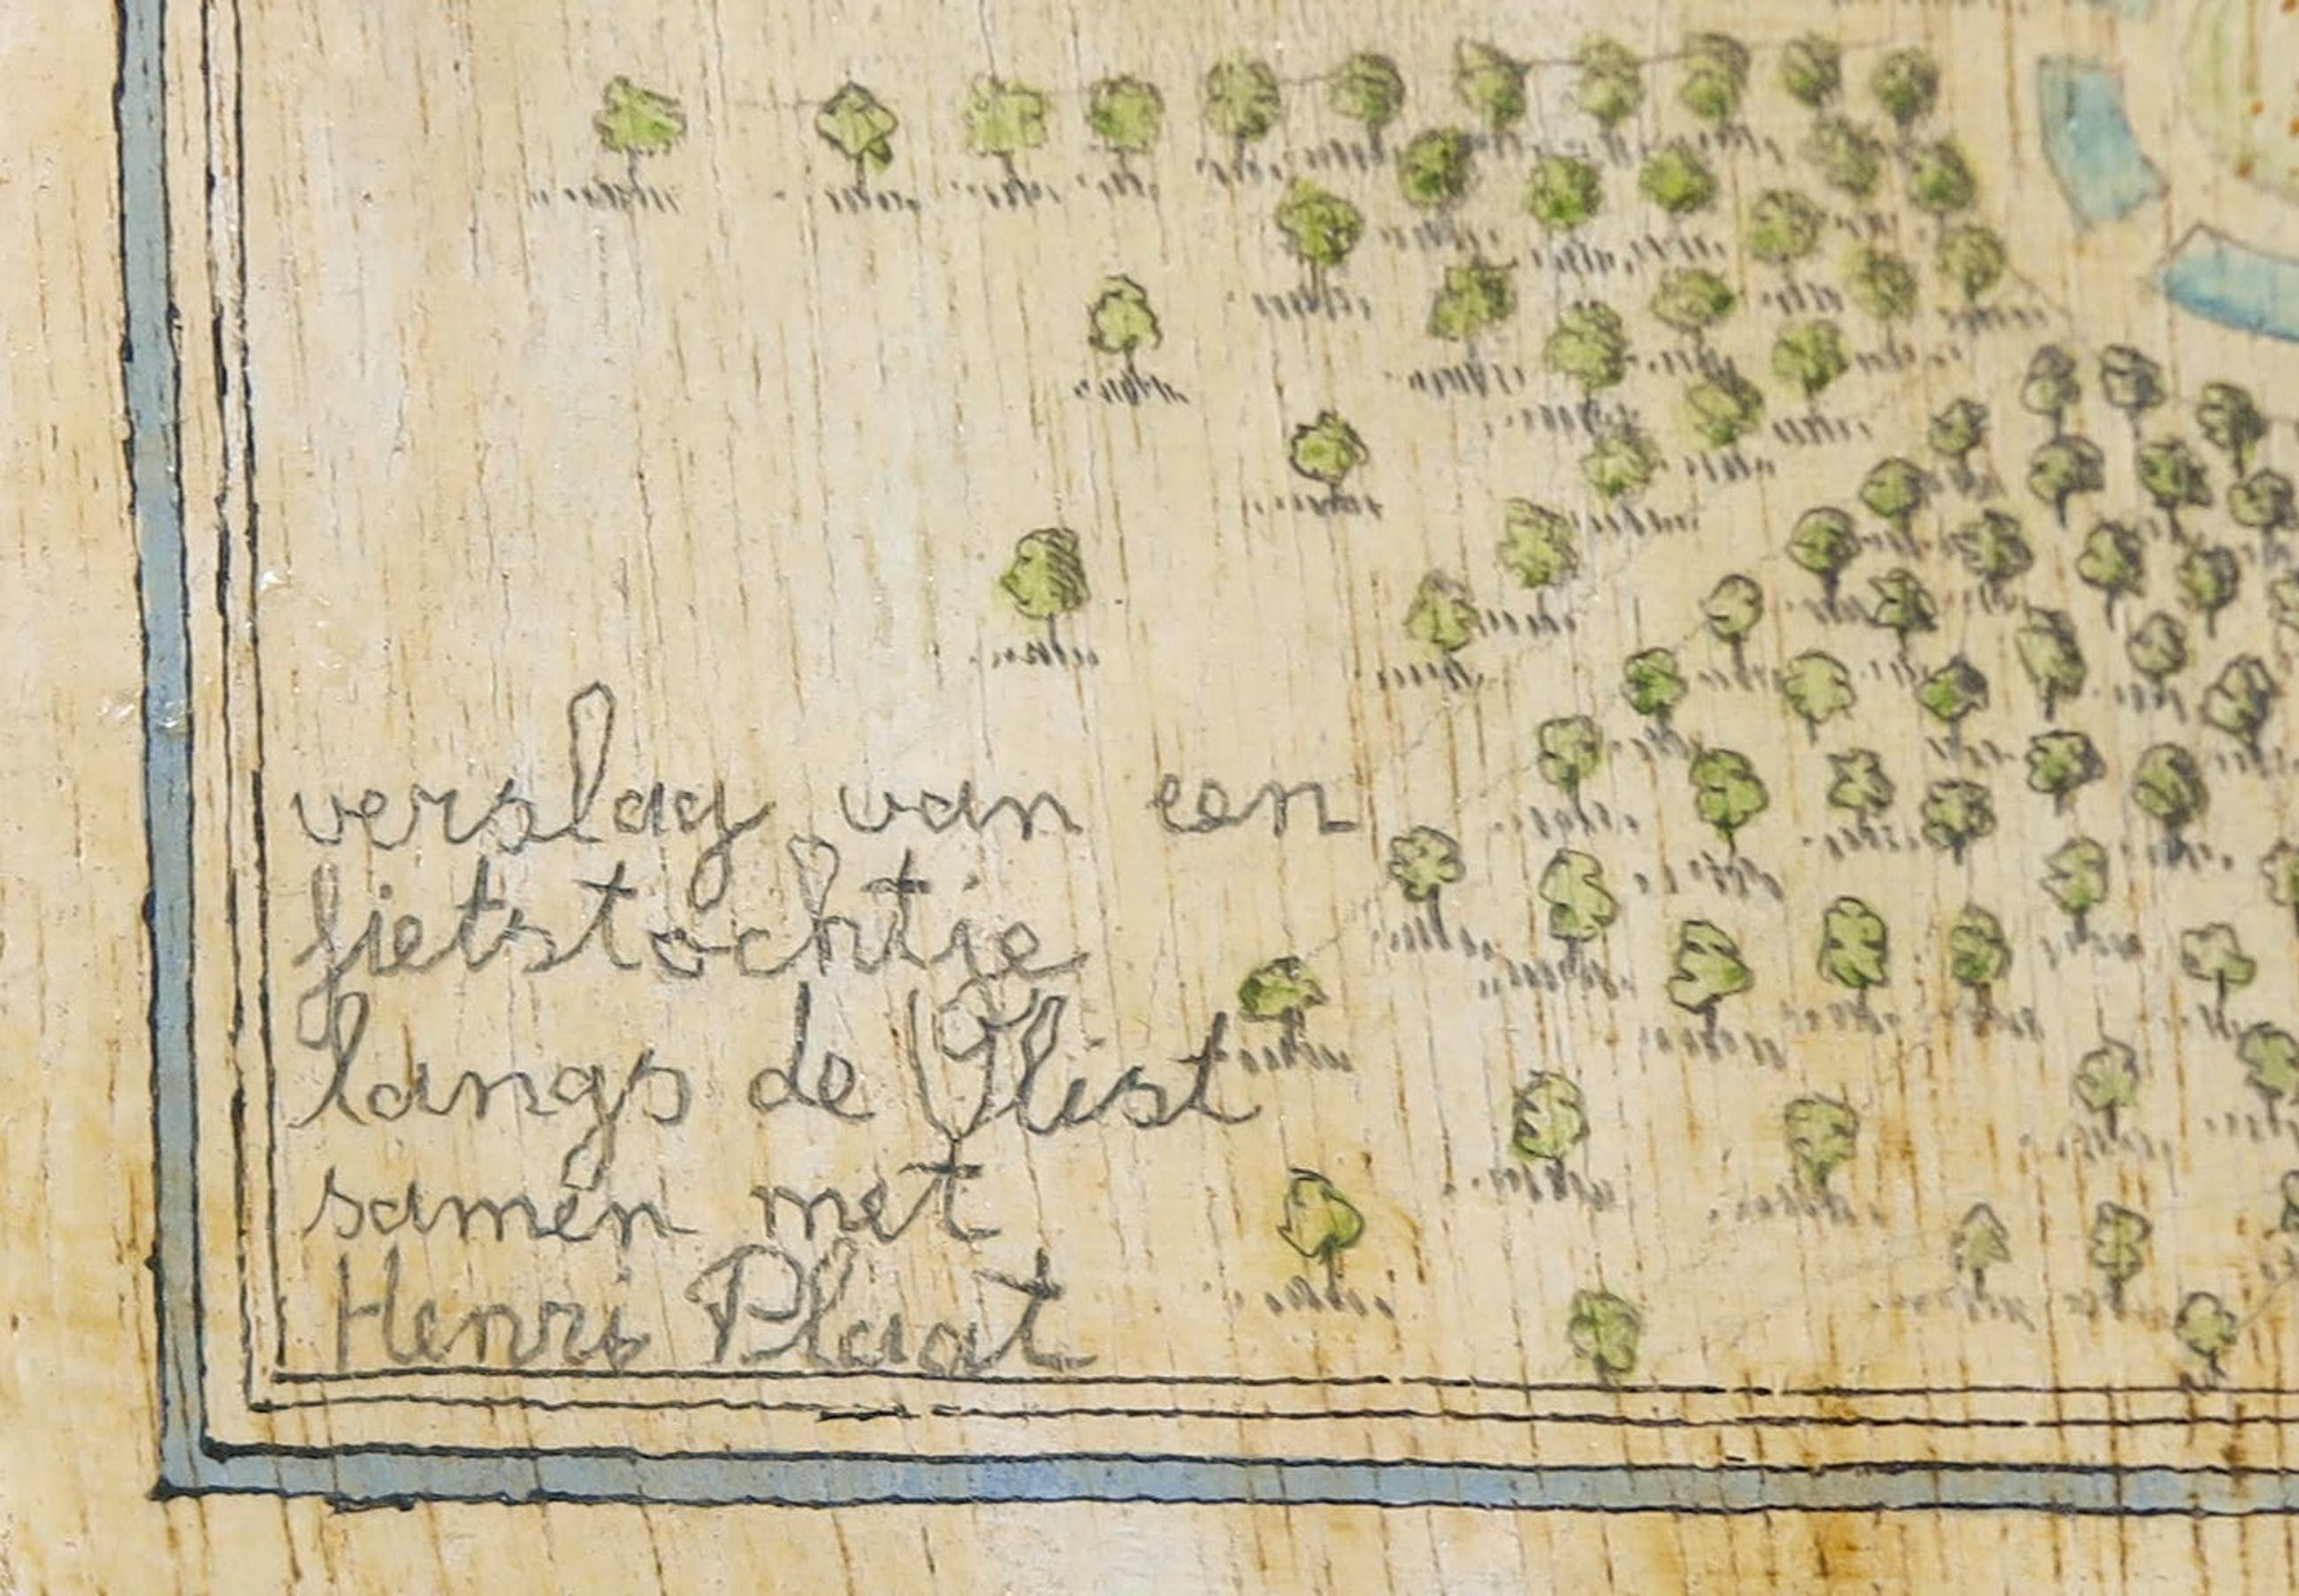 verslag van een
fietstochtje
langs de Vlist
samen met
Henri Plaat